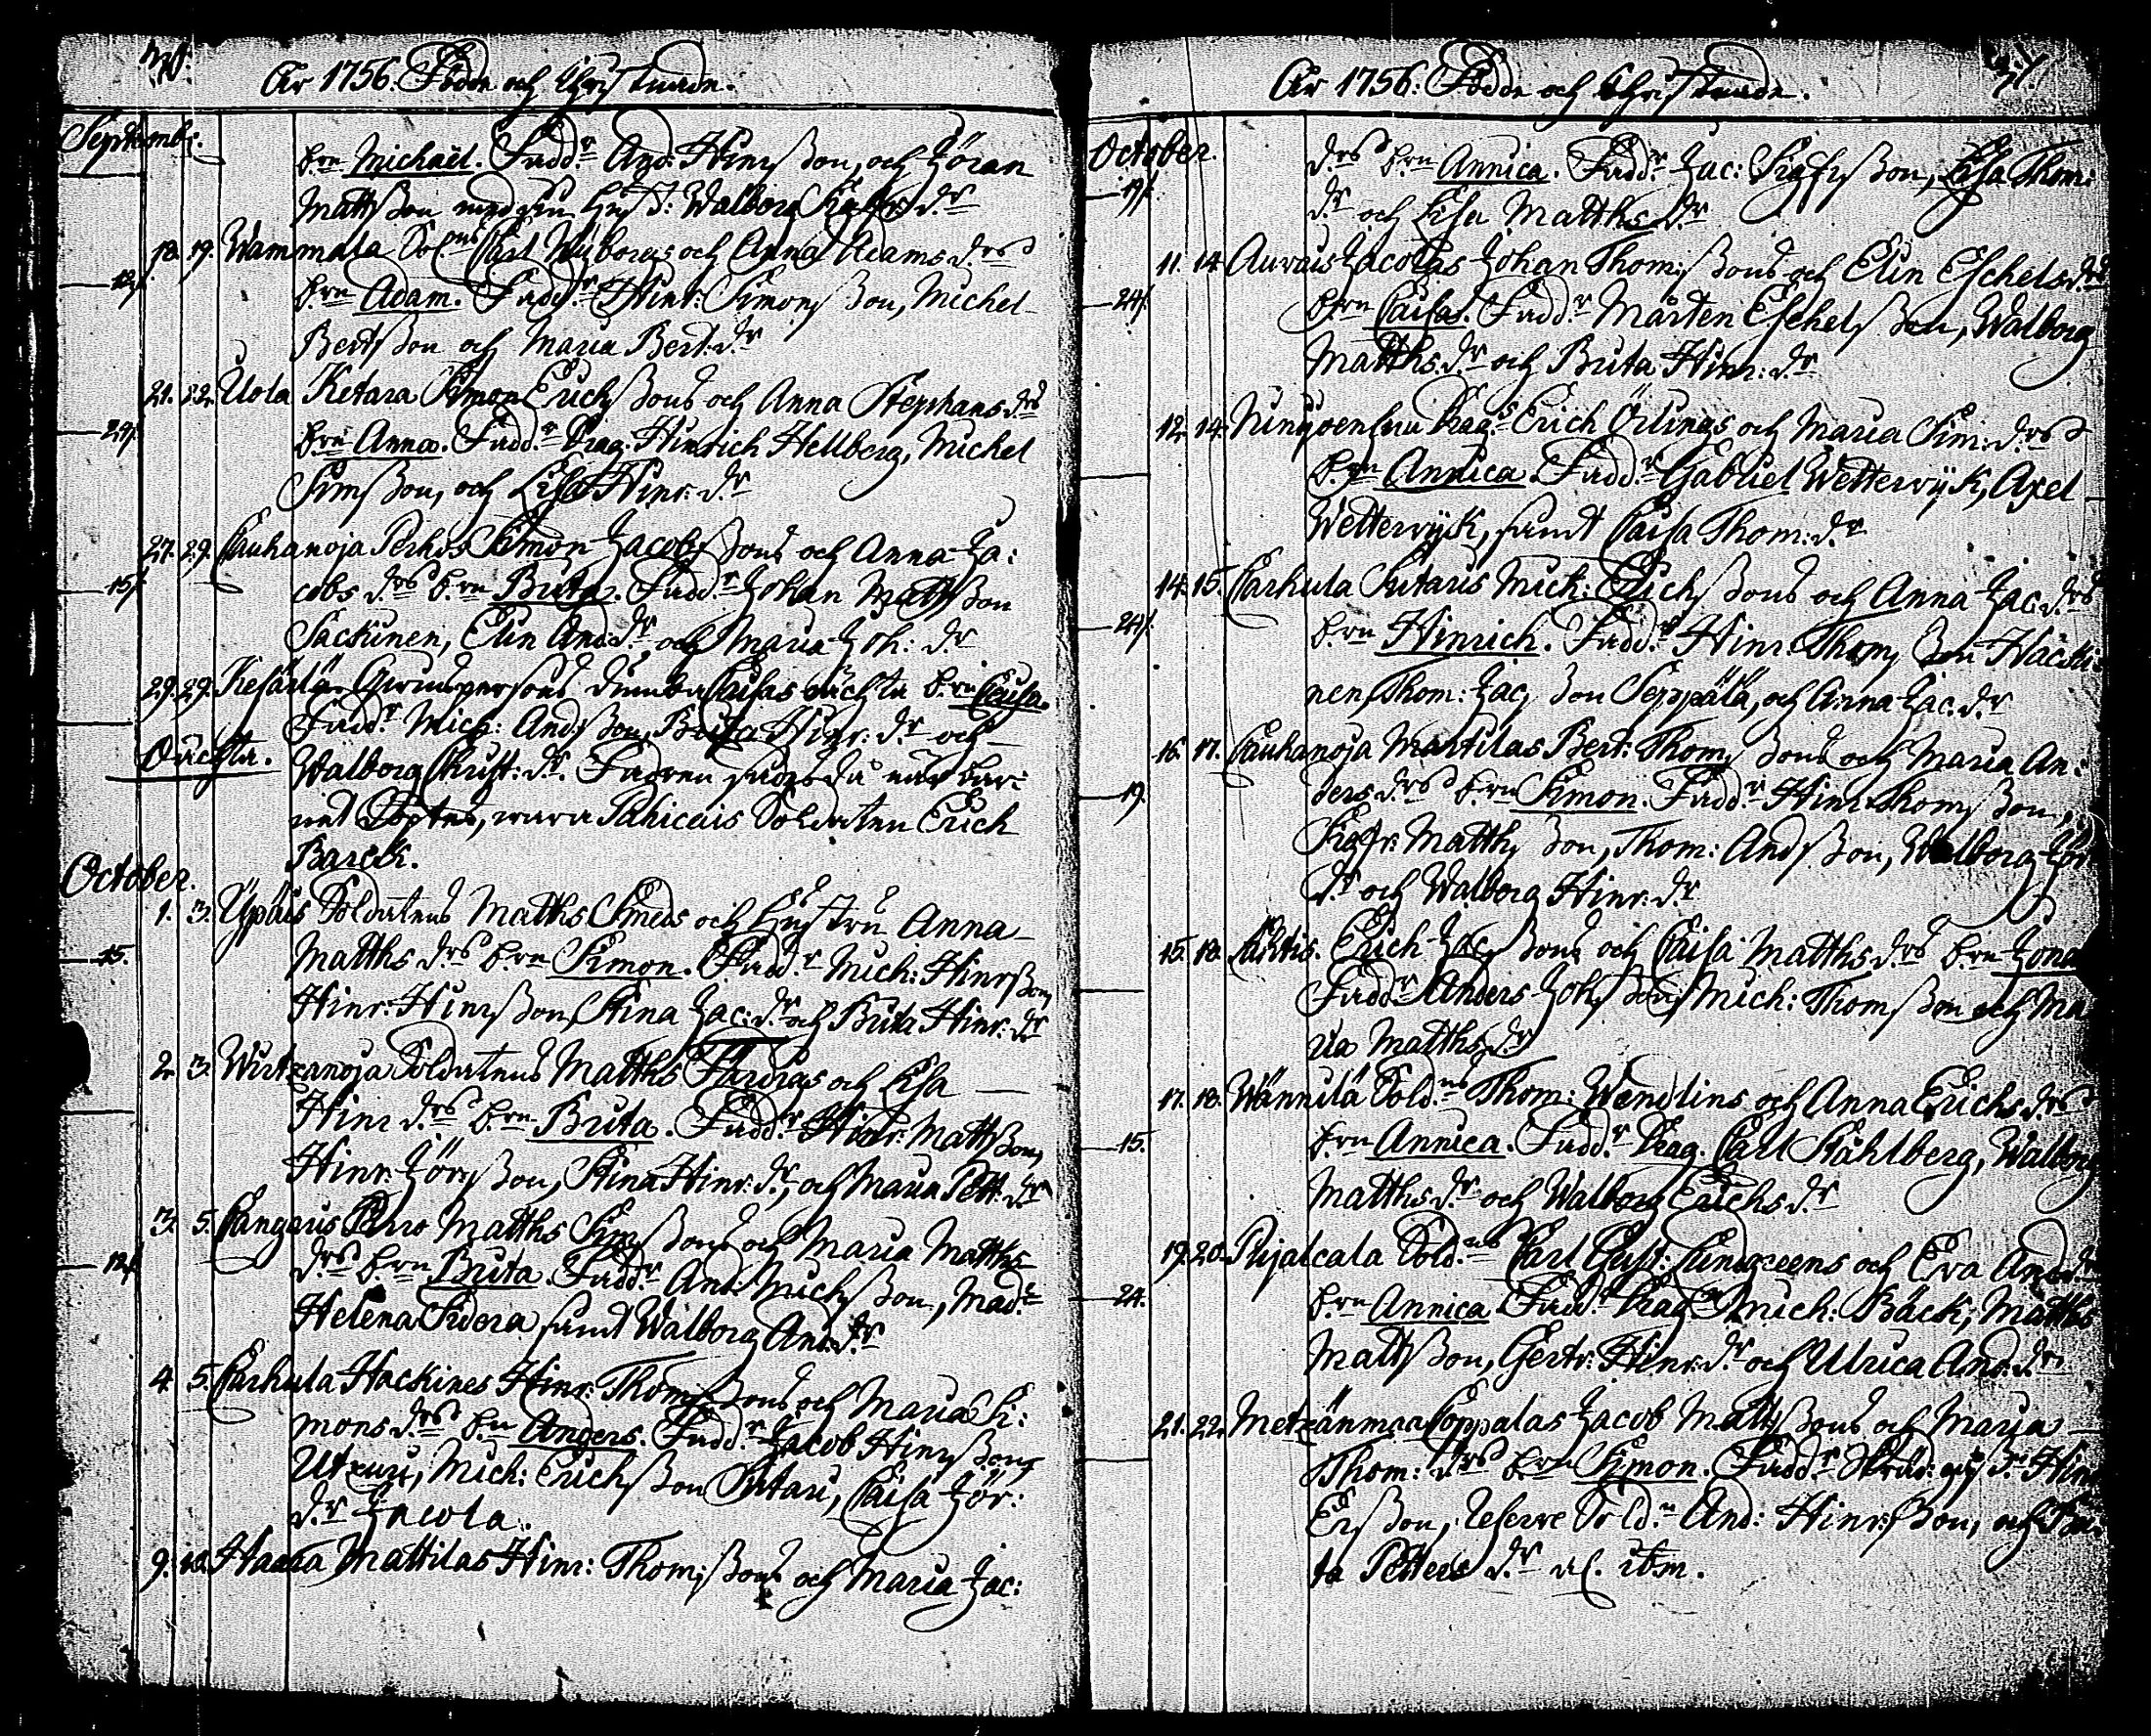 30.
År 1756. Födde och Christnade.
Septembr.
b:rn Michaël. Fadd:r And: Hinrsson, och Jöran
Mattsson med sin Hust: Walborg d:r
18. 19. Wammala Sol:ns Carl Wiborgs och Anna Adams d:rs
12/. b:rn Adam. Fadd:r Hinr: Simonsson, Michel
Bertsson och Maria Bert: d:r
21. 22. Uola Ketara Simon Erichssons och Anna Stephans d:rs
29/. b:rn Anna. Fadd:r Drag: Hinrich Hellberg, Michel
Simsson, och Lisa Hinr: d:r
27. 29. Cauhanoja Perhos Simon Jacobssons och Anna Ja:
15/. cobs d:rs b:rn Brita. Fadd:r Johan Mattsson
Säckinen, Elin And: d:r och Maria Joh: d:r
29. 29. Kesärlä Caisas oächta b:rn Caisa.
Fadd:r Mich: Andsson, Brita Hinr: d:r och
Oächta. Walborg Christ: d:r. Fadren sades då när bar:
net döptes, wara Pahicais Soldaten Erich
Barck.
October.
1. 3. Ypäis Soldatens Matths Smeds och Hustru Anna
15. Matths d:rs b:rn Simon. Fadd:r Mich: Hinrsson
Hinr: Hinrsson, Stina Jac: d:r och Brita Hinr: d:r
2. 3. Wirtzanoja Soldatens Matths Hardias och Lisa
Hinr d:rs b:rn Brita. Fadd:r Hinr: Mattsson,
Hinr: Jörsson, Stina Hinr: d:r, och Maria Pett: d:r
3. 5. Cangais Perho Matths Simssons och Maria Matths
12/. d:rs b:rn Brita. Fadd:r And: Michsson, Mad:e
Helena Sidera samt Walborg And: d:r
4. 5. Carhula Hackines Hinr: Thomssons och Maria Si:
mons d:rs b:rn Anders. Fadd:r Jacob Hinrsson
Utzuri, Mich: Erichsson Sutari, Caisa Jör:
d:r Jacola.
9. 10. Haara Mattilas Hinr: Thomssons och Maria Jac:
31.
År 1756: Födde och Christnade.
October.
d:rs b:rn Annica. Fadd:r Jac: Sigfrsson, Lisa Thom:
19/. d:r och Lisa Matths d:r
11. 14. Aurais Jacolas Johan Thomssons och Elin Eschels d:rs
24/. b:rn Caisa. Fadd:r Mårten Eschelsson, Walborg
Matths d:r och Brita Hinr: d:r
12. 14. Drag:s Erich Örlings och Maria Sim: d:rs
b:rn Annica. Fadd:r Gabriel Wetterwijk, Axel
Wetterwijk, samt Caisa Thom: d:r
14. 15. Carhula Sutaris Mich: Erichssons och Anna Jac. d:rs
24/. b:rn Hinrich. Fadd:r Hinr: Thomsson Häcki
nen, Thom: Jacsson Seppälä, och Anna Jac. d:r
16. 17. Cauhanoja Martilas Bert: Thomssons och Maria An:
19. ders d:rs b:rn Simon. Fadd:r Hinr: Thomsson,
Sigfr: Matthsson, Thom: Andsson, Walborg Jör
d:r och Walborg Hinr: d:r
15. 18. Erich Jacssons och Caisa Matths d:rs b:rn Jona
Fadd:r Anders Johsson, Mich: Thomsson och Ma
ria Matths d:r
17. 18. Wännilä Sold:ns Thom: Wendlins och Anna Erichs d:rs
15. b:rn Annica. Fadd:r Drag. Carl Ståhlberg, Walborg
Matths d:r och Walborg Erichs d:r
19. 20. Pijalcala Sold:ns Carl Gust: Lindgreens och Eva And: d:rs
24. b:rn Annica. Fadd:r Drag:n Mich: Bäck, Matths
Mattsson, Gertr: Hinr: d:r och Ulrica And: d:r
21. 22. Metzänmaa Coppalas Jacob Mattssons och Maria
Thom: d:rs b:rn Simon. Fadd:r Hinr
Ersson, Reserve Sold:n And: Hinrsson, och Bri
ta Petters d:r